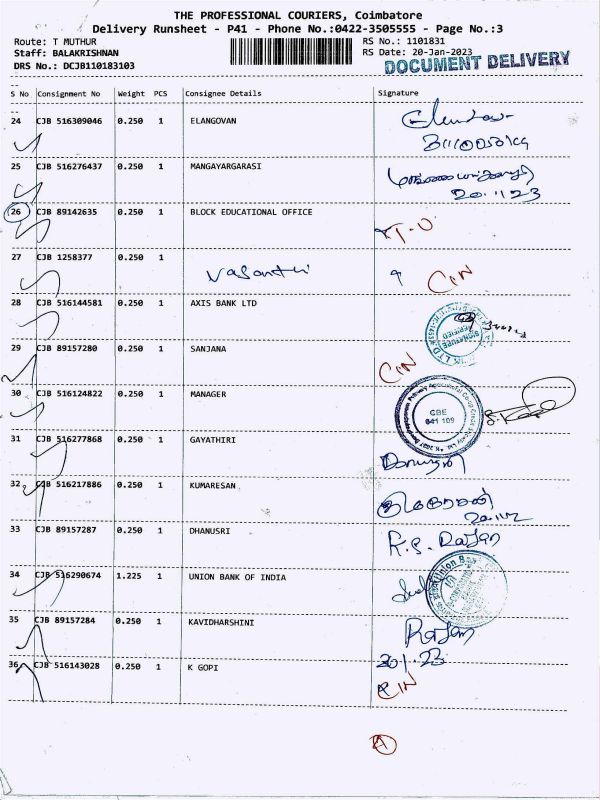 THE PROFESSIONAL COURIERS, Coimbatore
Delivery Runsheet - P41 - Phone No.:0422-3505555 - Page No.:3
Route: T MUTHUR
RS No.: 1101831
Staff: BALAKRISHNAN
RS Date: 20-Jan-2023
DRS No.: DCJB110183103
DOCUMENT DELIVERY
S No Consignment No Weight PCS Consignee Details Signature
24 CJB 516309046 0.250 1 ELANGOVAN
25 CJB 516276437 0.250 1 MANGAYARGARASI
20.1.23
26 CJB 89142635 0.250 1 BLOCK EDUCATIONAL OFFICE
27 CJB 1258377 0.250 1 Vasanthi CIN
28 CJB 516144581 0.250 1 AXIS BANK LTD
SIGNATURE VERIFIED
29 CJB 89157280 0.250 1 SANJANA CIN
30 CJB 516124822 0.250 1 MANAGER
CBE
31 CJB 516277868 0.250 1 GAYATHIRI
32 CJB 516217886 0.250 1 KUMARESAN
33 CJB 89157287 0.250 1 DHANUSRI R.S. Rajan
34 CJB 516290674 1.225 1 UNION BANK OF INDIA
Union Bank
35 CJB 89157284 0.250 1 KAVIDHARSHINI Rajan
20.1.23
36 CJB 516143028 0.250 1 K GOPI CIN
A